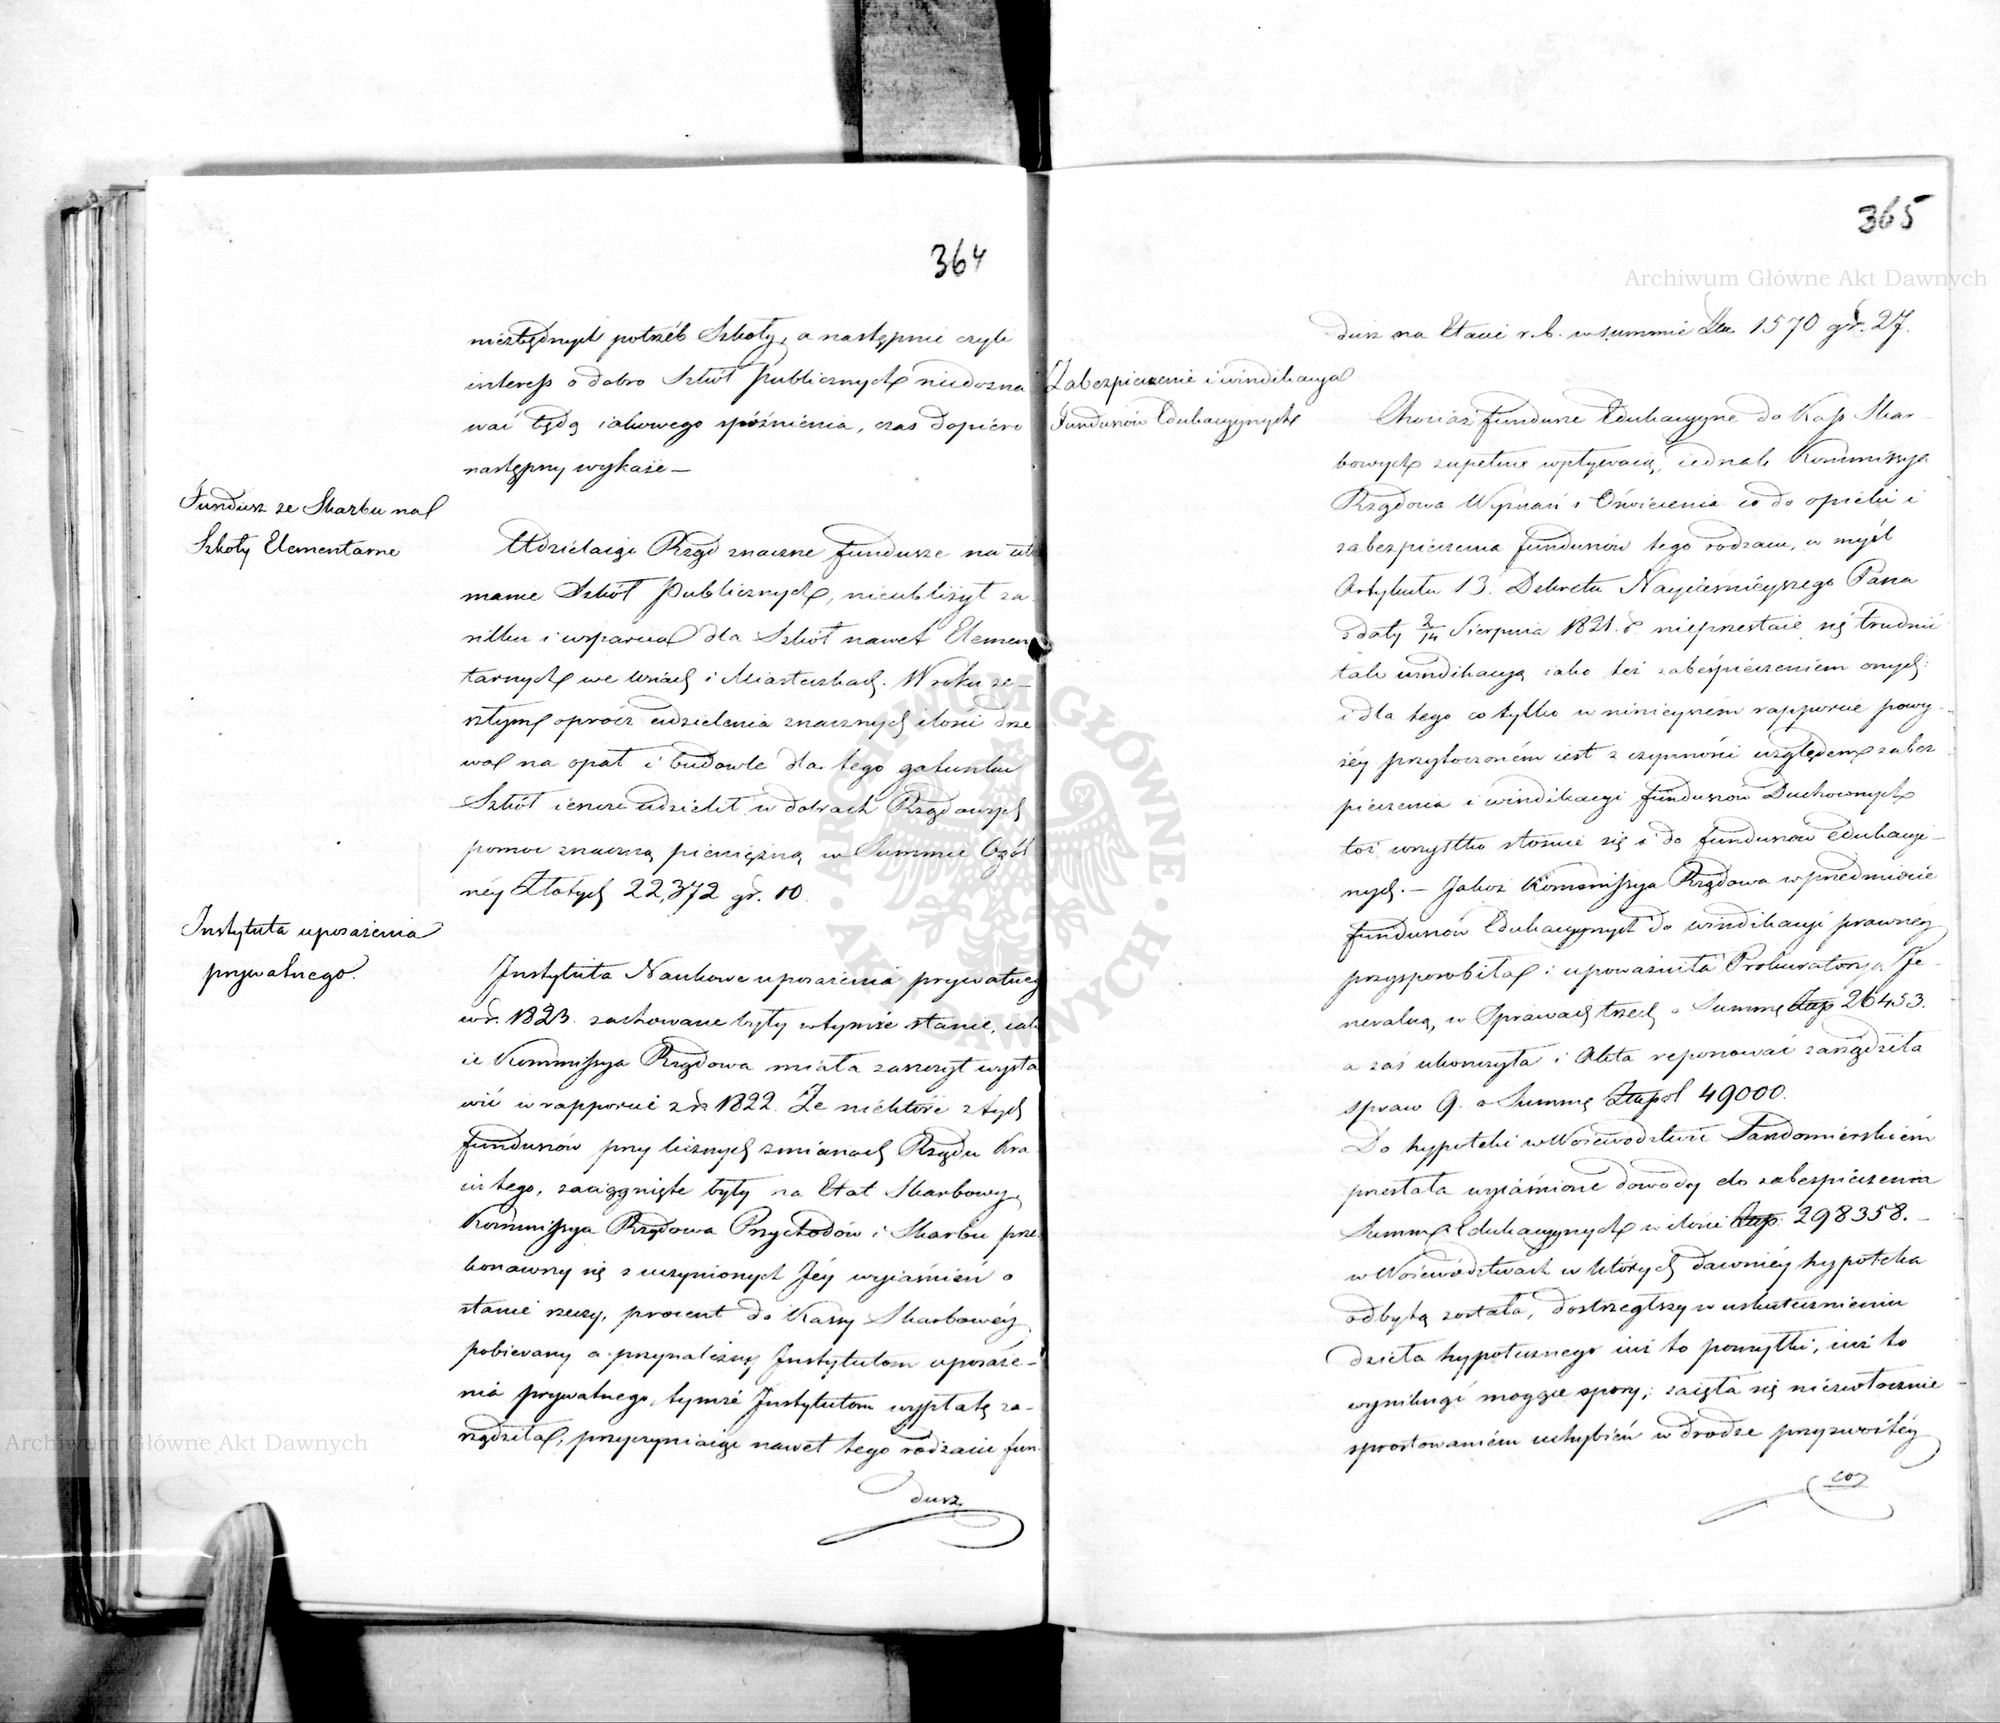 364
niezbędnych potrzeb Szkoły, a następnie czyli
interess o dobro Szkół Publicznych niedozna
wać będą iakowego spóźnienia, czas dopiéro
następny wykaże –
Fundusz ze Skarbu na
Szkoły Elementarne
Udzielaiąc Rząd znaczne fundusze na utrzy
manie Szkół Publicznych, nieubliżył za
siłku i wsparcia dla Szkół nawet Elemen
tarnych we wsiach i Miasteczkach. W roku ze–
szłym oprócz udzielenia znacznych ilości drze
wa na opał i budowle dla tego gatunku
Szkół ieszcze udzielił w dobrach Rządowych
pomoc znaczną pieniężną w Summie Ogól
néy Złotych 22,372 gr. 10
Instytuta uposażenia
prywatnego.
Instytuta Naukowe uposażenia prywatneg
w r. 1823. zachowane były w tymże stanie, iak
ie Kommissya Rządowa miała zaszczyt wysta
wić w rapporcie z r. 1822. Że niektóre z tych
funduszów przy licznych zmianach Rządu Kra
iowego, zaciągnięte były na Etat Skarbowy,
Kommissya Rządowa Przychodów i Skarbu prze
konawszy się z uczynionych Jéy wyiaśnień o
stanie rzeczy, procent do Kassy Skarbowéy
pobierany a przynależny Instytutom uposaże–
nia prywatnego, tymże Instytutom wypłatę za–
rządziła, przyczyniaiąc nawet tego rodzaiu fun
dusz
365
Archiwum Główne Akt Dawnych
dusz na Etacie r. b. w summie Złp. 1570 gr. 27.
Zabezpieczenie i windikacya
Funduszów Edukacyjnych
Chociaż fundusze Edukacyjne do Kass Skar–
bowych zupełnie wpływaią, iednak Kommissya
Rządowa Wyznań i Oświecenia co do opieki i
zabezpieczenia funduszów tego rodzaiu, w myśl
Artykułu 13. Dekretu Nayiaśnieyszego Pana
z daty 2/14 Sierpnia 1821. r. nieprzestaie się trudnić
tak windikacyą iako też zabezpieczeniem onych:
i dla tego co tylko w ninieyszém rapporcie powy–
żéy przytoczoném iest z czynności względem zabez
pieczenia i windikacyi funduszów Duchownych
toż wszystko stosuie się i do funduszów edukacyi–
nych. – Jakoż Kommissya Rządowa w przedmiocie
funduszów Edukacyjnych do windikacyi prawnéy
przysposobiła i upoważniła Prokuratoryą Je–
neralną, w Sprawach trzech o Summę Złp 26453.
a zaś ukończyła i Akta reponować zarządziła
spraw 9. o Summę Złtpol 49000.
Do hypoteki w Woiewództwie Sandomierskiém
przesłała wyiaśnione dowody do zabezpieczenia
Summ Edukacyjnych w ilości Złtp. 298358. –
w Woiewództwach w których dawniéy hypoteka
odbytą została, dostrzegłszy w uskutecznieniu
dzieła hypotecznego iuż to pomyłki, iuż to
wyniknąć mogące spory, zaięła się niezwłocznie
sprostowaniém uchybień w drodze przyzwoitéy
co
ARCHIWUM GŁÓWNE · AKT DAWNYCH ·
Archiwum Główne Akt Dawnych